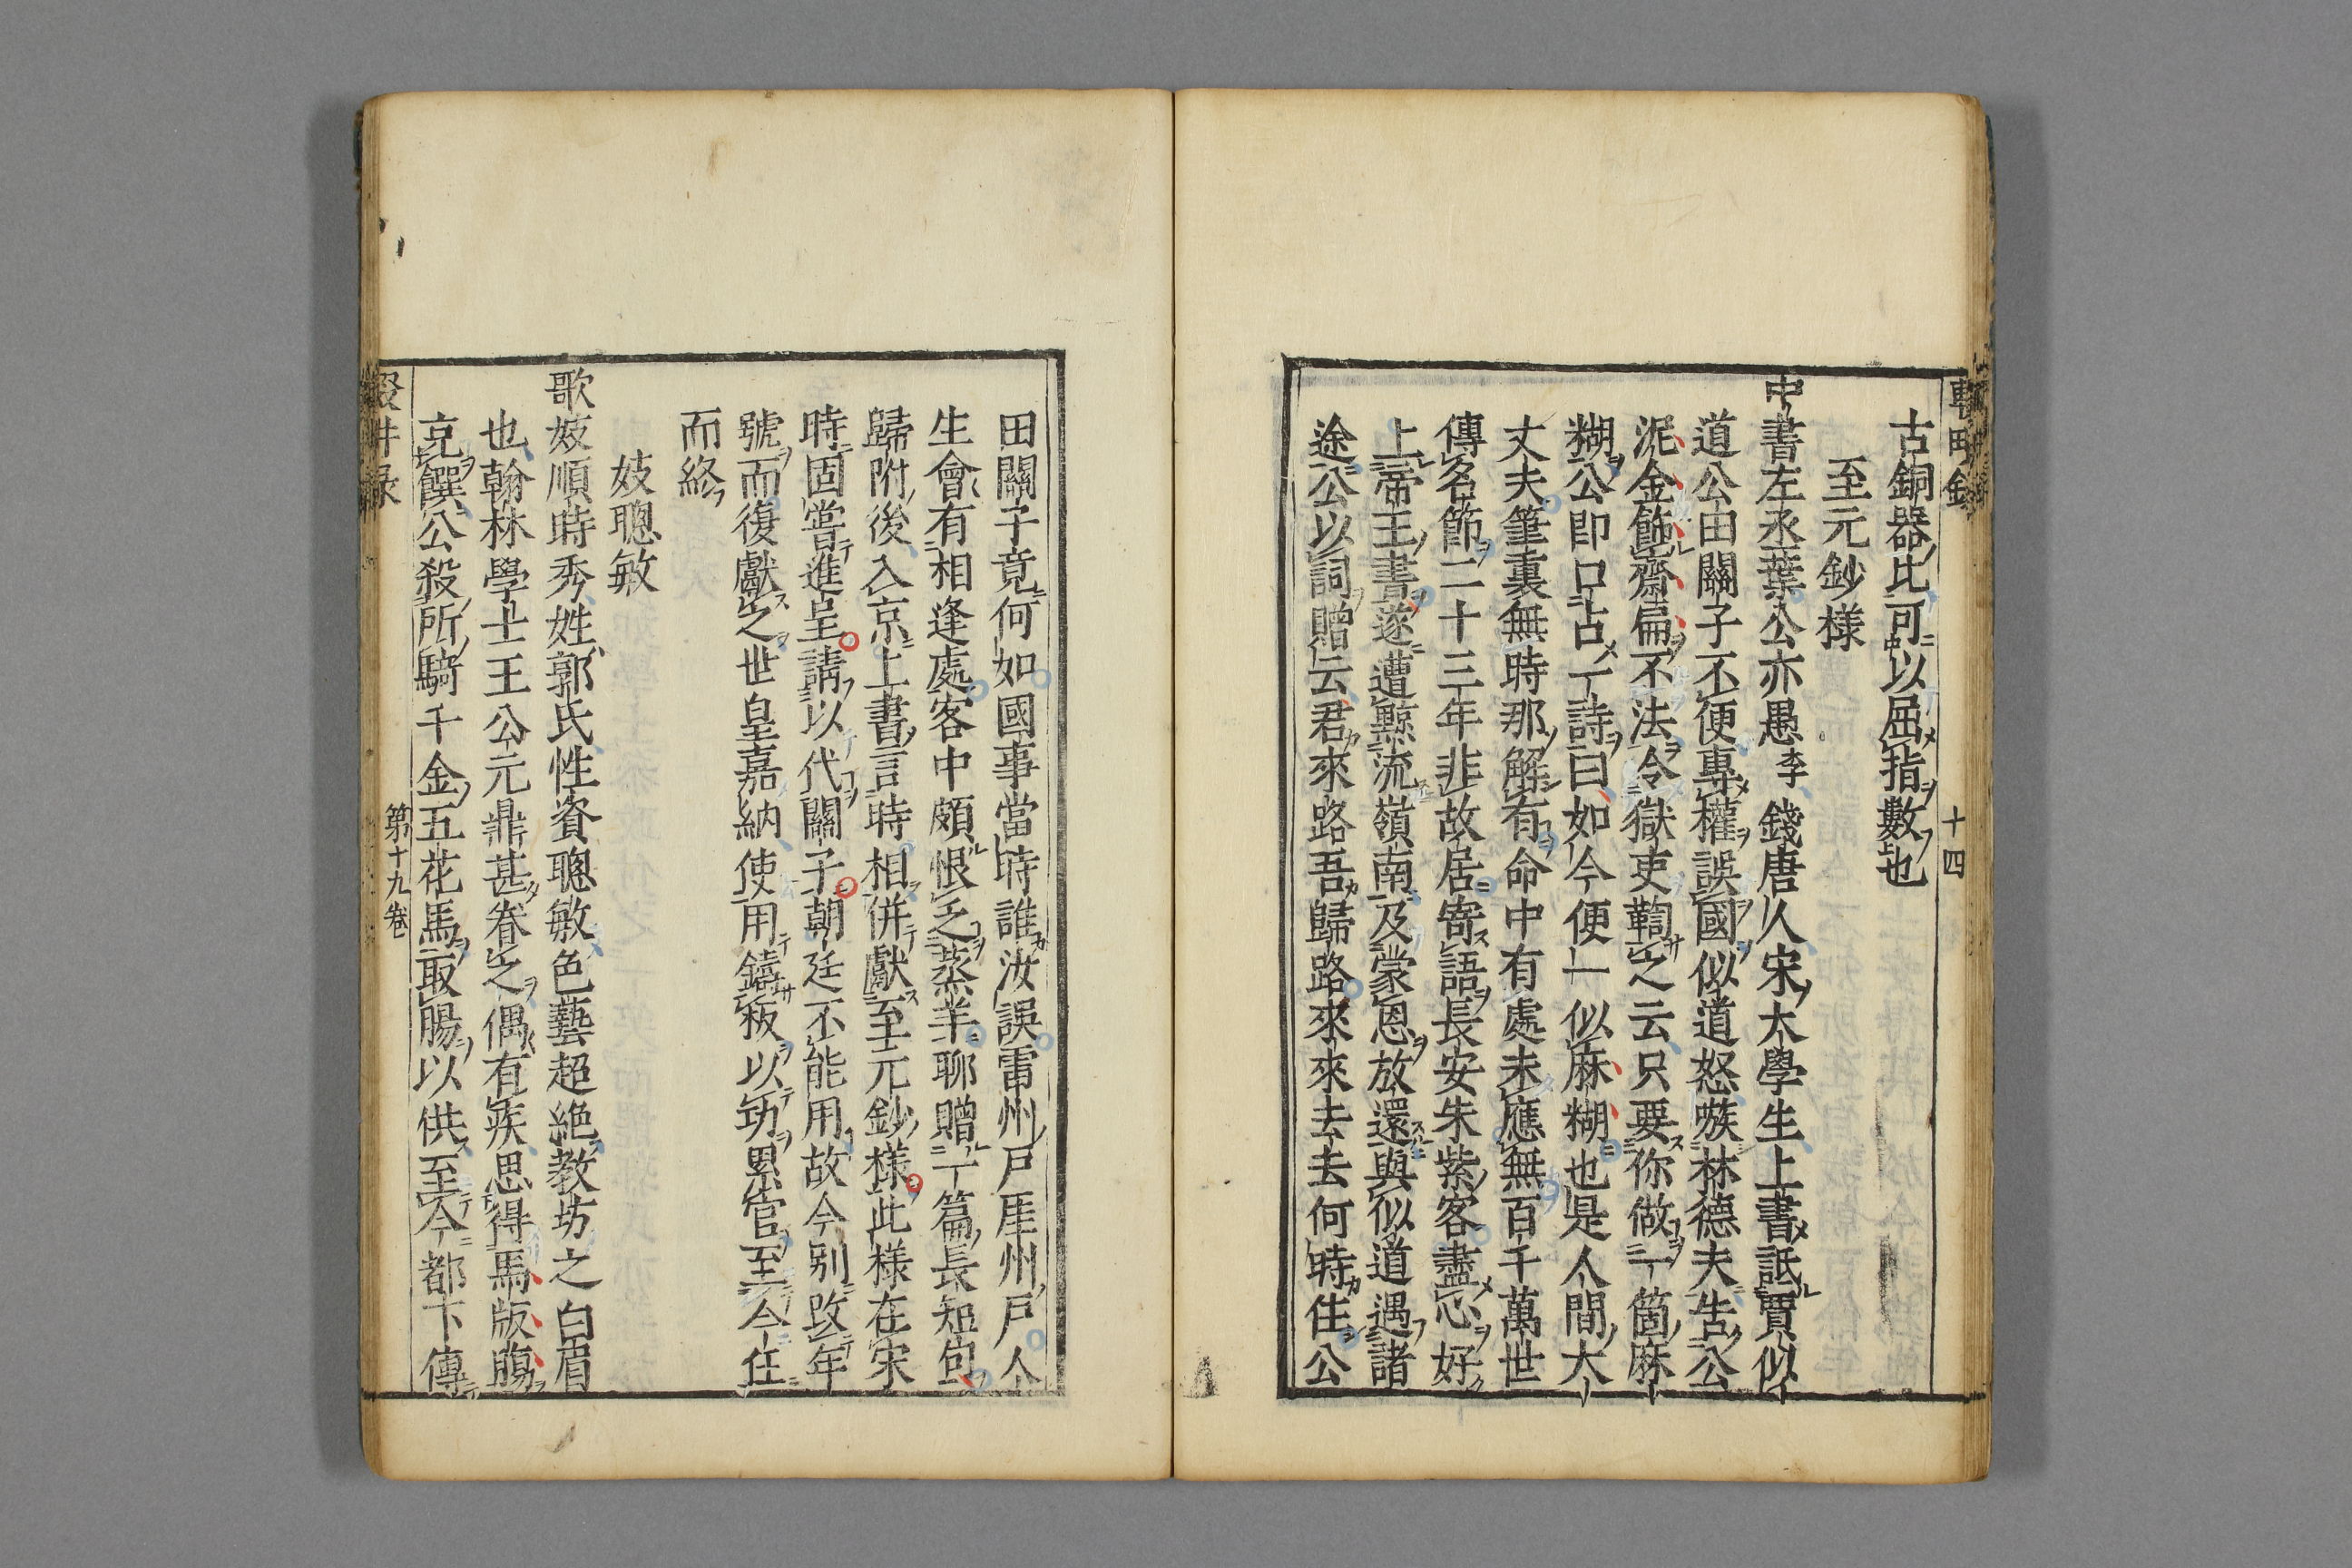 十四
古銅器比可以屈指數也
至元鈔樣
中書左丞葉公亦愚李錢唐人宋太學生上書詆賈似
道公田關子不便專權誤國似道怒嗾林德夫告公
泥金飾齋扁不法令獄吏鞫之云只要你做一箇麻
糊公即口占一詩曰如今便一似麻糊也是人間大
丈夫筆裏無時那解有命中有處未應無百千萬世
傳名節二十三年非故居寄語長安朱紫客盡心好
上帝王書遂遭黥流嶺南及蒙恩放還與似道遇諸
途公以詞贈云君來路吾歸路來來去去何時住公
田關子竟何如國事當時誰汝誤雷州戶厓州戶人
生會有相逢處客中頗恨乏蒸羊聊贈一篇長短句
歸附後入京上書言時相併獻至元鈔樣此樣在宋
時固嘗進呈請以代關子朝廷不能用故今別改年
號而復獻之世皇嘉納使用鑄板以功累官至今任
而終
妓聰敏
歌妓順時秀姓郭氏性資聰敏色藝超絕教坊之白眉
也翰林學士王公元鼎甚眷之偶有疾思得馬版膓
克饌公殺所騎千金五花馬取腸以供至今都下傳
第十九卷